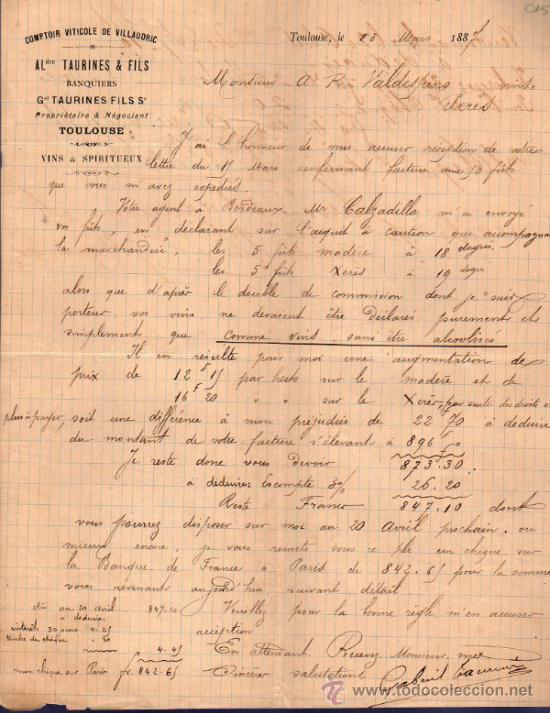 COMPTOIR VITICOLE DE VILLAUDRIC
ALdre TAURINES & FILS
BANQUIERS
Gel TAURINES FILS Sr
Propriétaire & Négociant
TOULOUSE
VINS & SPIRITUEUX
Toulouse, le 23 Mars 1887
Monsieur A R Valdespino
Xerès
J'ai l'honneur de vous accuser réception de votre
lettre du 15 Mars renfermant facture aux 10 fûts
que vous m'avez expédiés.
Votre agent à Bordeaux, Mr Calzadilla m'a envoyé
vos fûts, en déclarant sur l'acquit à caution qui accompagnait
la marchandise, les 5 fûts madère à 18 degrés
les 5 fûts Xerès à 19 degrés
alors que d'après le double de commission dont je suis
porteur, vos vins ne devaient être déclarés purement et
simplement que comme vins sans être alcoolisés
Il en résulte pour moi une augmentation de
prix de 12 F 15 par hecto sur le madère et de
16 F 20 " " sur le Xerès, par suite des droits en
plus à payer, soit une différence à mon préjudice de 22 F 70 à déduire
du montant de votre facture s'élevant à 896 F
Je reste donc vous devoir 873.30
à déduire Escompte 3% 26.20
Reste Francs 847.10 dont
vous pourrez disposer sur moi au 20 Avril prochain, ou
mieux encore, je vous remets sous ce pli en chèque sur
la Banque de France à Paris de 842.65 pour la somme
vous revenant aujourd'hui, suivant détail
dû au 20 avril 847.10
à déduire
intérêts 30 jours 4.25
timbre du chèque 20
4.45
mon chèque sur Paris fr. 842.65
Veuillez pour la bonne règle m'en accuser
réception
En attendant Recevez Monsieur, mes
Sincères salutations
Gabriel Taurines
todocoleccion
www.todocoleccion.net